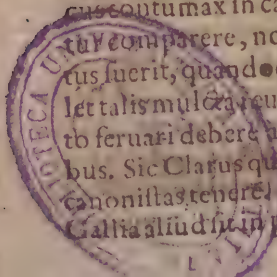 cus contumax in ca
tur comparere, no
tus fuerit, quando
let talis mulcta
to seruari debere
bus. Sic Clarus qu
canonistas tenere.
Gallia aliud sit in
BIBLIOTECA U